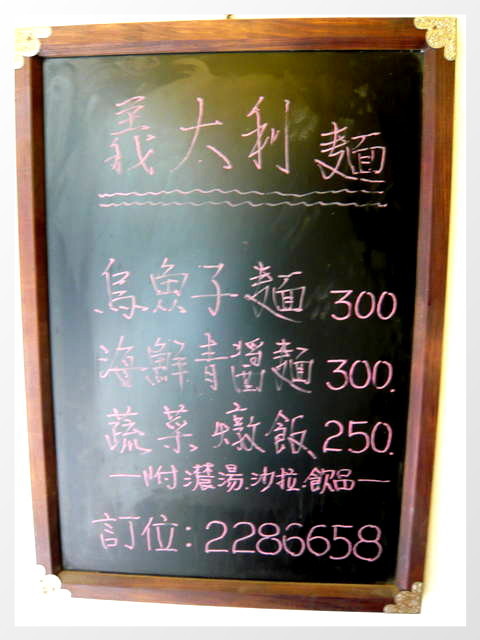 義大利麵
烏魚子麵 300
海鮮青醬麵 300.
蔬菜燉飯 250.
—附濃湯.沙拉.飲品—
訂位：2286658